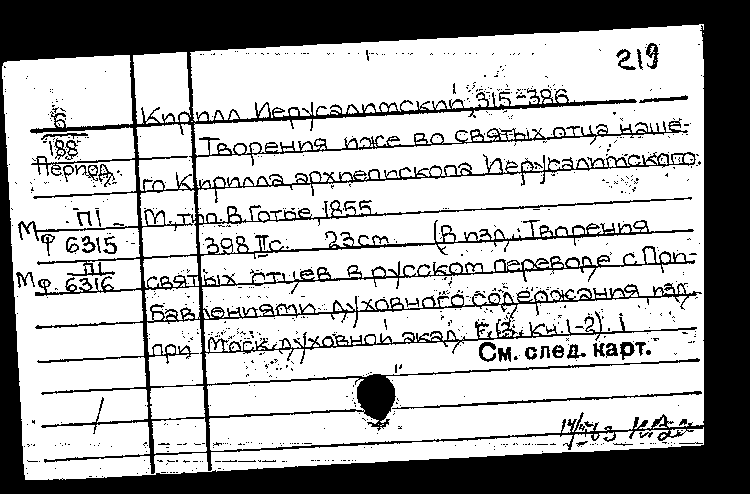 219
6
188
Период.
Кирилл Иерусалимский, 315-386
Творения иже во святых отца наше-
го Кирилла, архиепископа Иерусалимского.
М., тип. В. Готье, 1855.
МФ П1 6315
398 II с. 23 см. (В изд.: Творения
МФ П1 6316
святых отцев в русском переводе с При-
бавлениями духовного содержания, изд.
при Моск. духовной акад. Кн. 1-2).
См. след. карт.